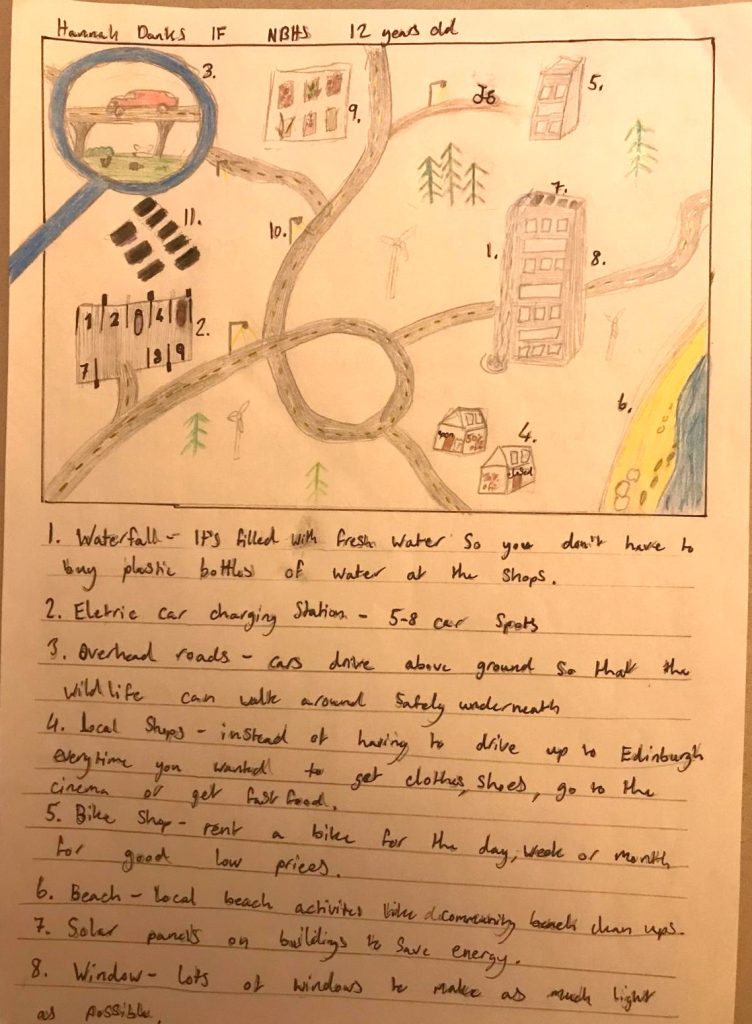 Hannah Danks 1F NBHS 12 years old
3.
9.
5.
11.
10.
7.
1.
8.
1 2 3 4
2.
7 8 9
6.
4.
closed
1. Waterfall - It's filled with fresh water so you don't have to
buy plastic bottles of water at the shops.
2. Eletric car charging station - 5-8 car spots
3. Overhead roads - cars drive above ground so that the
wildlife can walk around safely underneath
4. Local Shops - instead of having to drive up to Edinburgh
everytime you wanted to get clothes, shoes, go to the
cinema or get fast food.
5. Bike Shop - rent a bike for the day, week or month
for good low prices.
6. Beach - local beach activites like community beach clean ups.
7. Solar panels on buildings to save energy.
8. Window - lots of windows to make as much light
as possible.